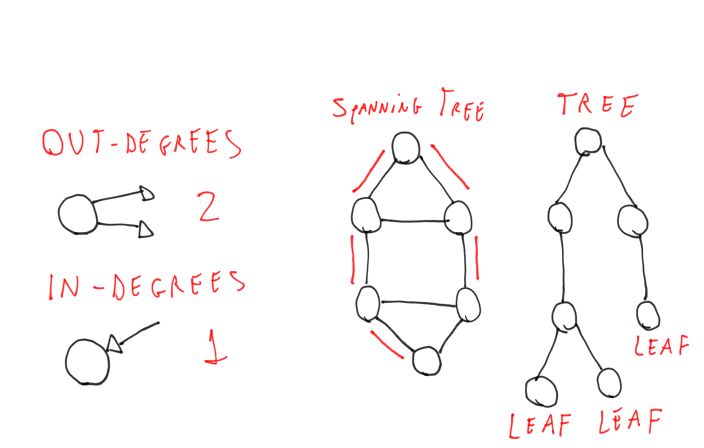 OUT-DEGREES
2
IN-DEGREES
1
SPANNING TREE
TREE
LEAF
LEAF
LEAF